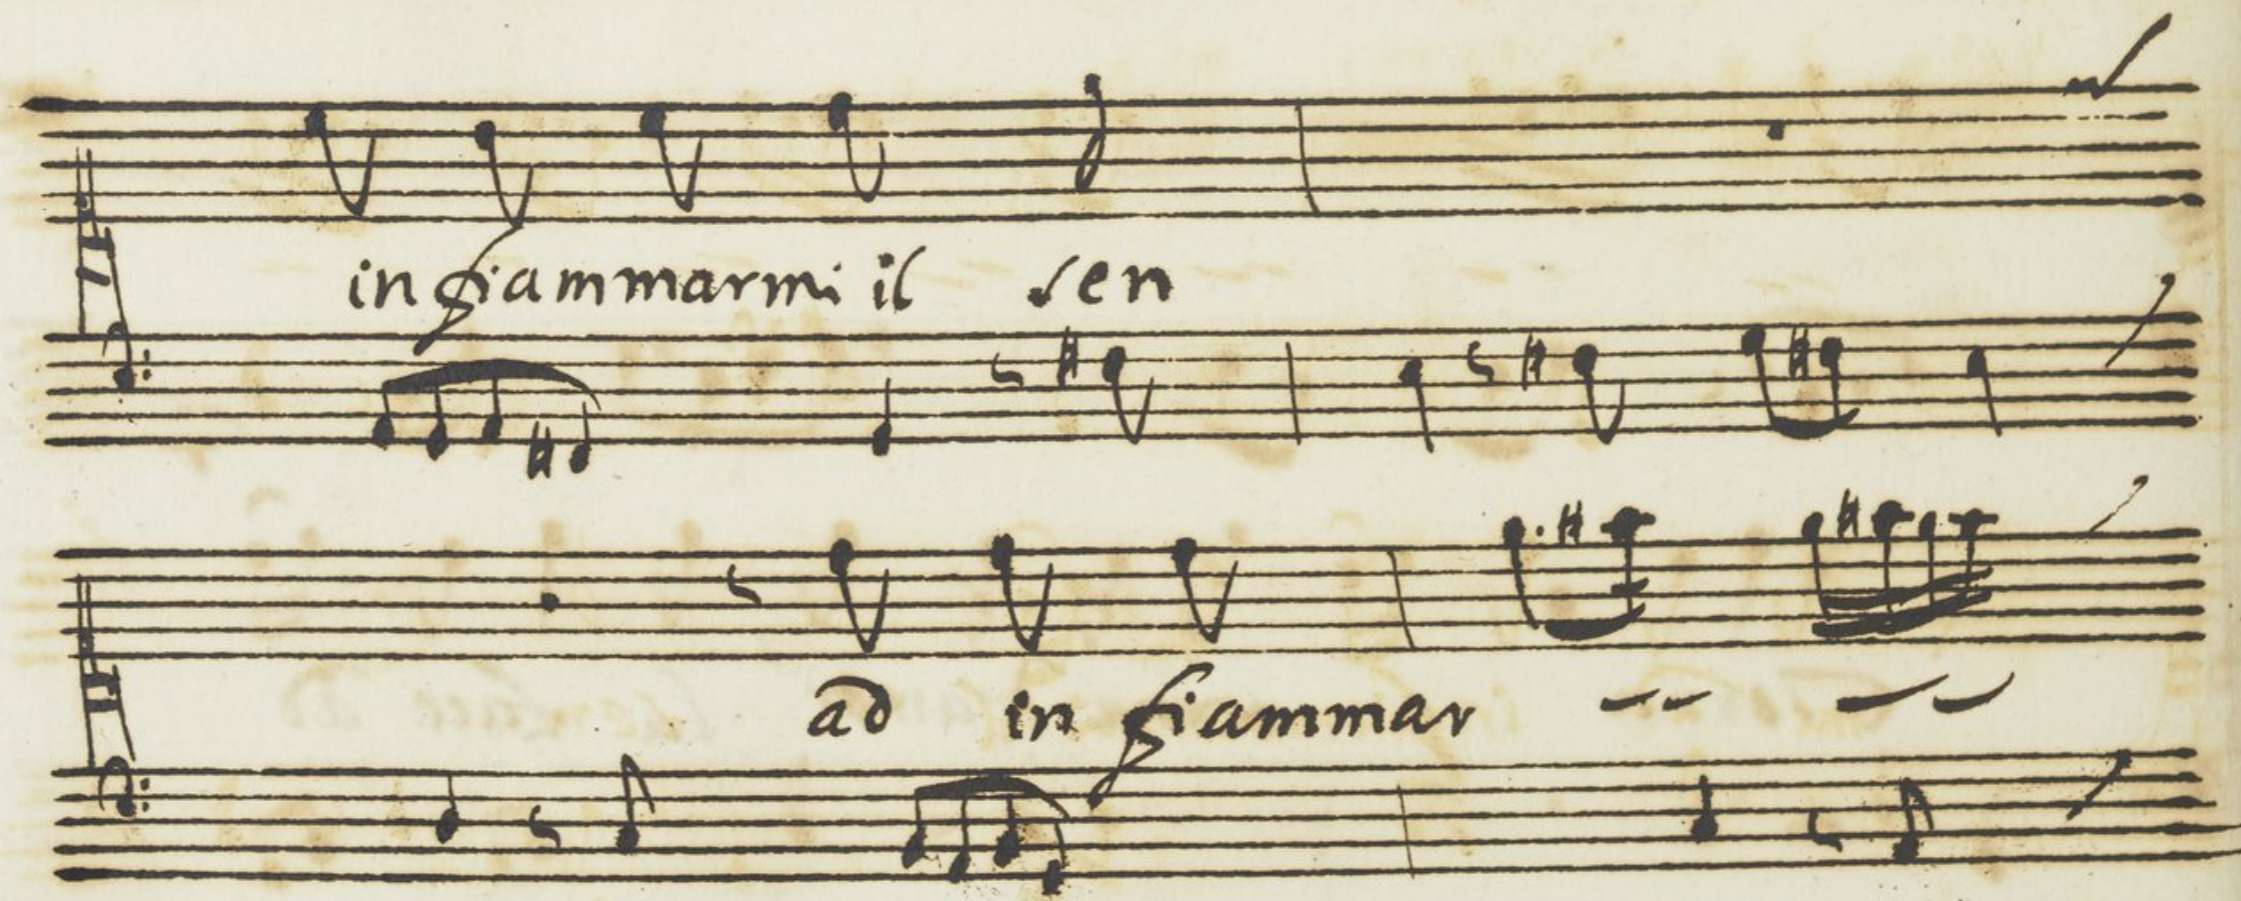 in fiammarmi il sen
ad in fiammar